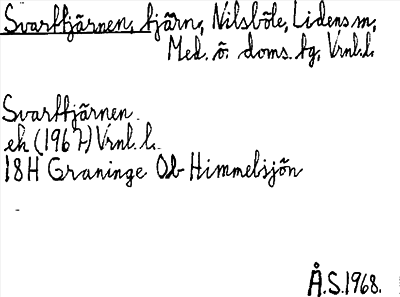 Svarttjärnen, tjärn, Nilsböle, Lidens sn,
Med. ö. doms. tg, Vrnl. l.
Svarttjärnen.
ek (1967) Vrnl. l.
18H Graninge Ob Himmelsjön
Å.S. 1968.